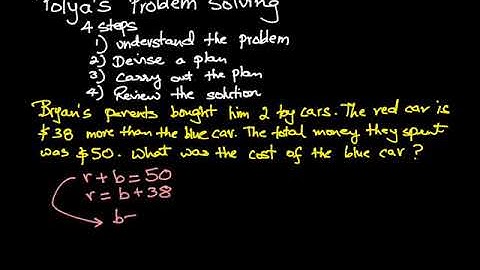 Polya's Problem Solving
4 steps
1) understand the problem
2) Devise a plan
3) Carry out the plan
4) Review the solution
Bryan's parents bought him 2 toy cars. The red car is
$38 more than the blue car. The total money they spent
was $50. What was the cost of the blue car?
r + b = 50
r = b + 38
b-